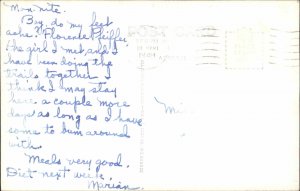 Mon. nite.
Boy, do my feet
ache. Florence Pfeiffer,
the girl I met, and I
have been doing the
trails together. I
think I may stay
here a couple more
days as long as I have
some to bum around
with.
Meals very good.
Diet next week.
Marian